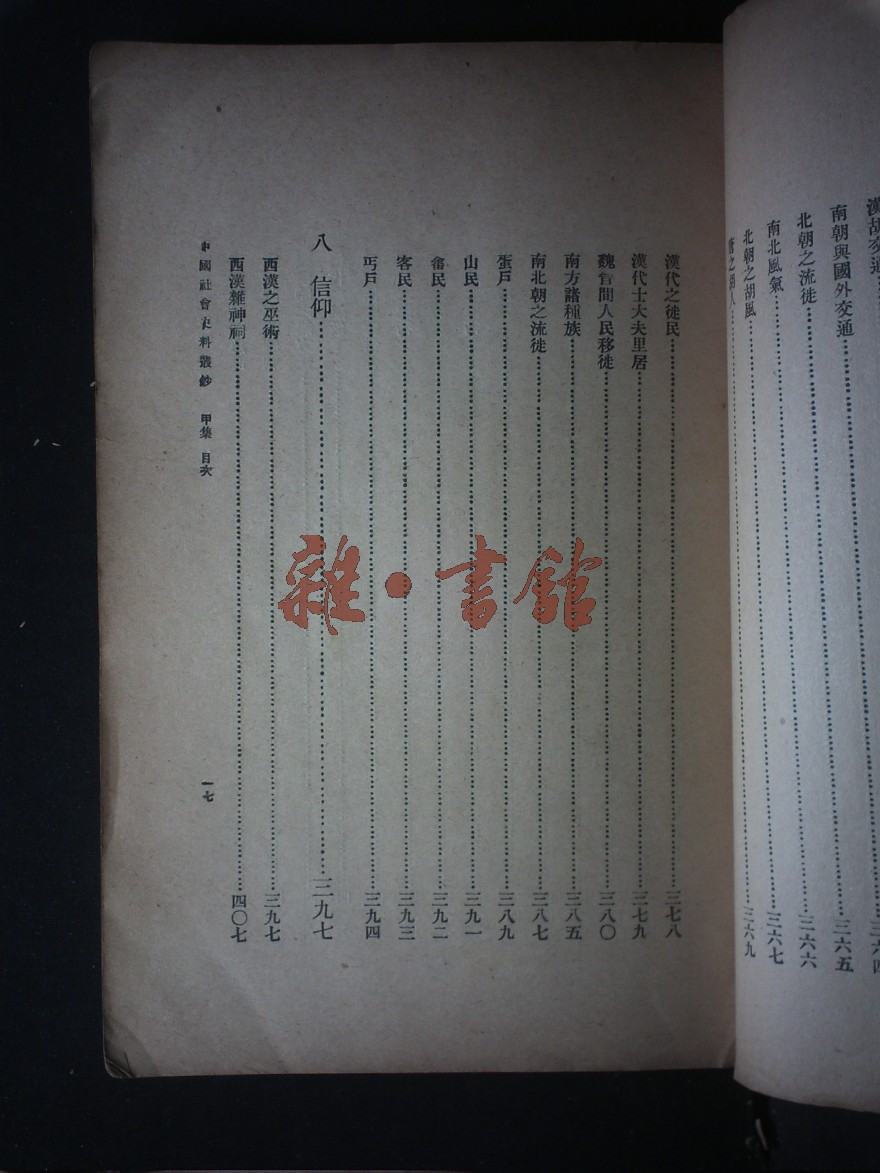 漢胡交通
南朝與國外交通……三六五
北朝之流徙……三六六
南北風氣……三六七
北朝之胡風……三六九
漢代之徒民……三七八
漢代士大夫里居……三七九
魏晉間人民移徙……三八〇
南方諸種族……三八五
南北朝之流徙……三八七
蛋戶……三八九
山民……三九一
畲民……三九二
客民……三九三
丐戶……三九四
八 信仰……三九七
西漢之巫術……三九七
西漢雜神祠……四〇七
中國社會史料叢鈔 甲集 目次 一七
雜·書館